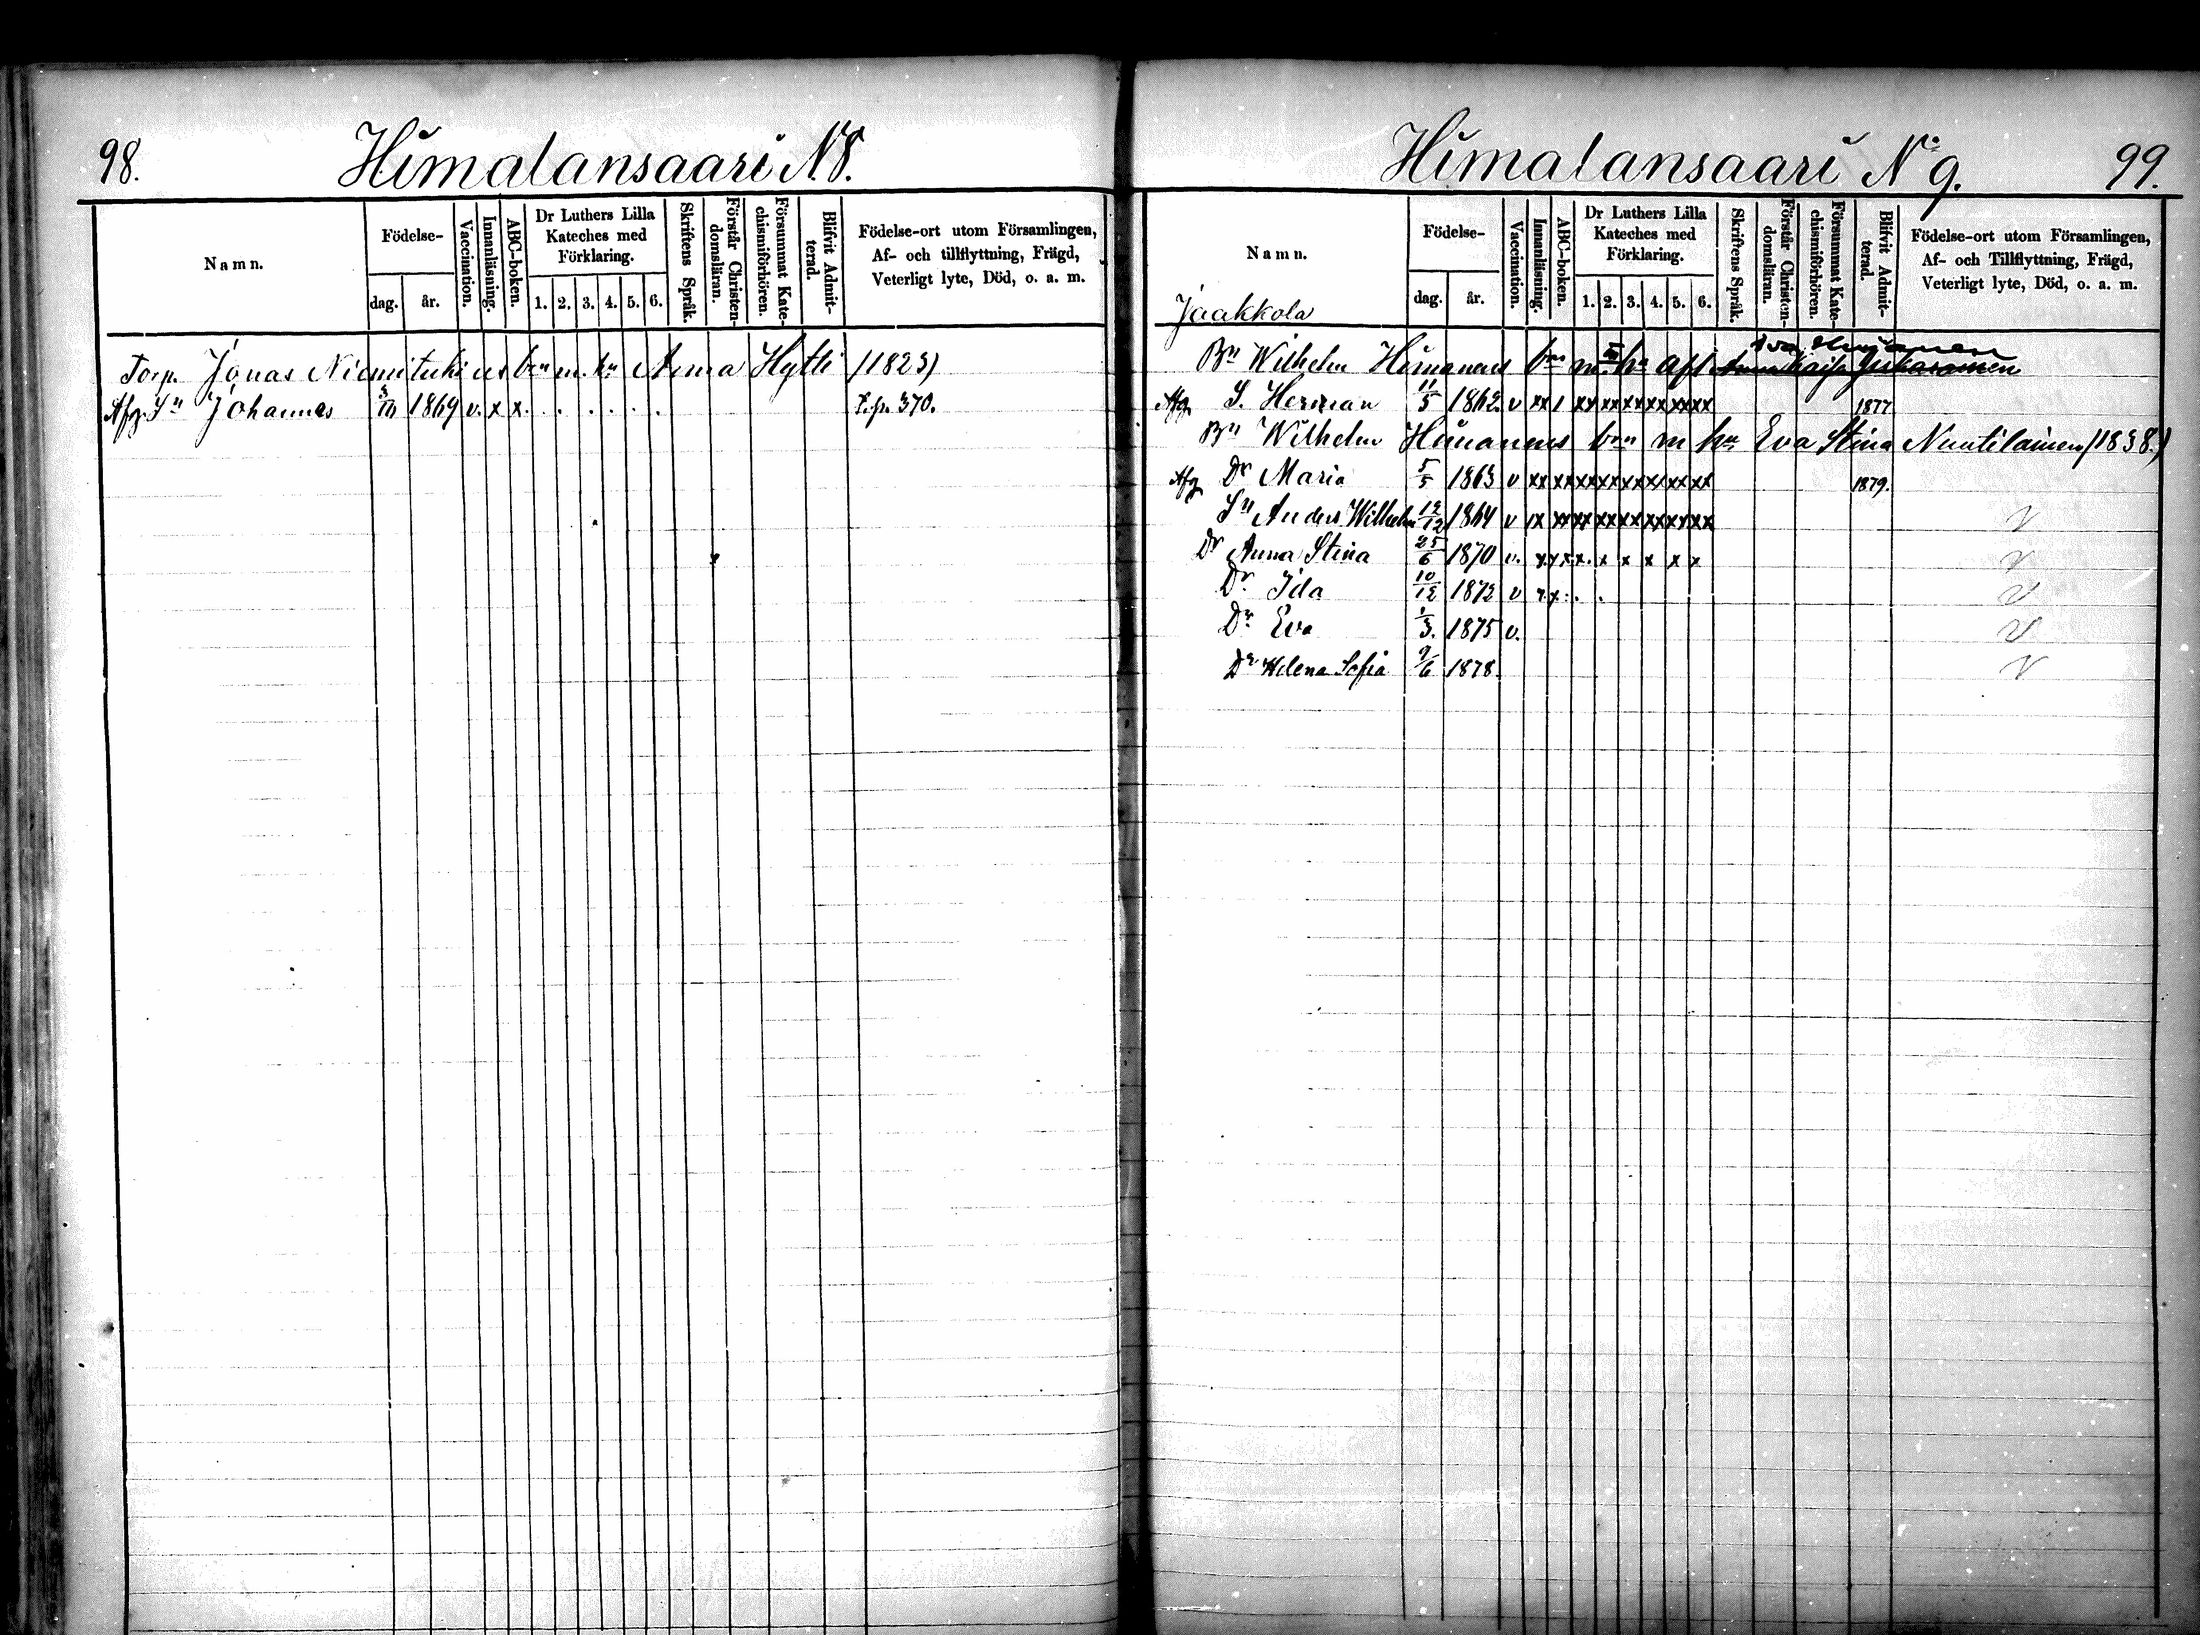 98. Himalansaari N 8.
Namn.
Födelse-
dag. år.
Vaccination.
Innanläsning.
ABC-boken.
Dr Luthers Lilla Kateches med Förklaring.
1. 2. 3. 4. 5. 6.
Skriftens Språk.
Förstår Christendomsläran.
Försummat Katechismiförhören.
Blifvit Admitterad.
Födelse-ort utom Församlingen, Af- och tillflyttning, Frägd, Veterligt lyte, Död, o. a. m.
Torp. Jonas Niemi bn m. hu Anna Hytti (1823)
Afg. Sn Johannes 3/III 1869 v. x x . . . . . . 370.
Himalansaari No 9. 99.
Namn.
Jaakkola
Födelse-
dag. år.
Vaccination.
Innanläsning.
ABC-boken.
Dr Luthers Lilla Kateches med Förklaring.
1. 2. 3. 4. 5. 6.
Skriftens Språk.
Förstår Christendomsläran.
Försummat Katechismiförhören.
Blifvit Admitterad.
Födelse-ort utom Församlingen, Af- och Tillflyttning, Frägd, Veterligt lyte, Död, o. a. m.
Bn Wilhelm Himanens bn m hu afl Anna Kaisa
Afg. S. Herman 11/5 1862. v xx x xx xx xx xx xx xx 1877
Bn Wilhelm Himanens bn m hu Eva Stina Nuutilainen (1838.)
Afg Dr Maria 5/5 1863 v xx xx xx xx xx xx xx xx 1879.
Sn Anders Wilhelm 12/12 1864 v x xx xx xx xx xx xx xx v
Dr Anna Stina 25/6 1870 v. x x x x. x x x x x v
Dr. Ida 10/12 1872 v x x . . v
Dr Eva 1/3. 1875 v. v
Dr Helena Sofia 9/6 1878. v